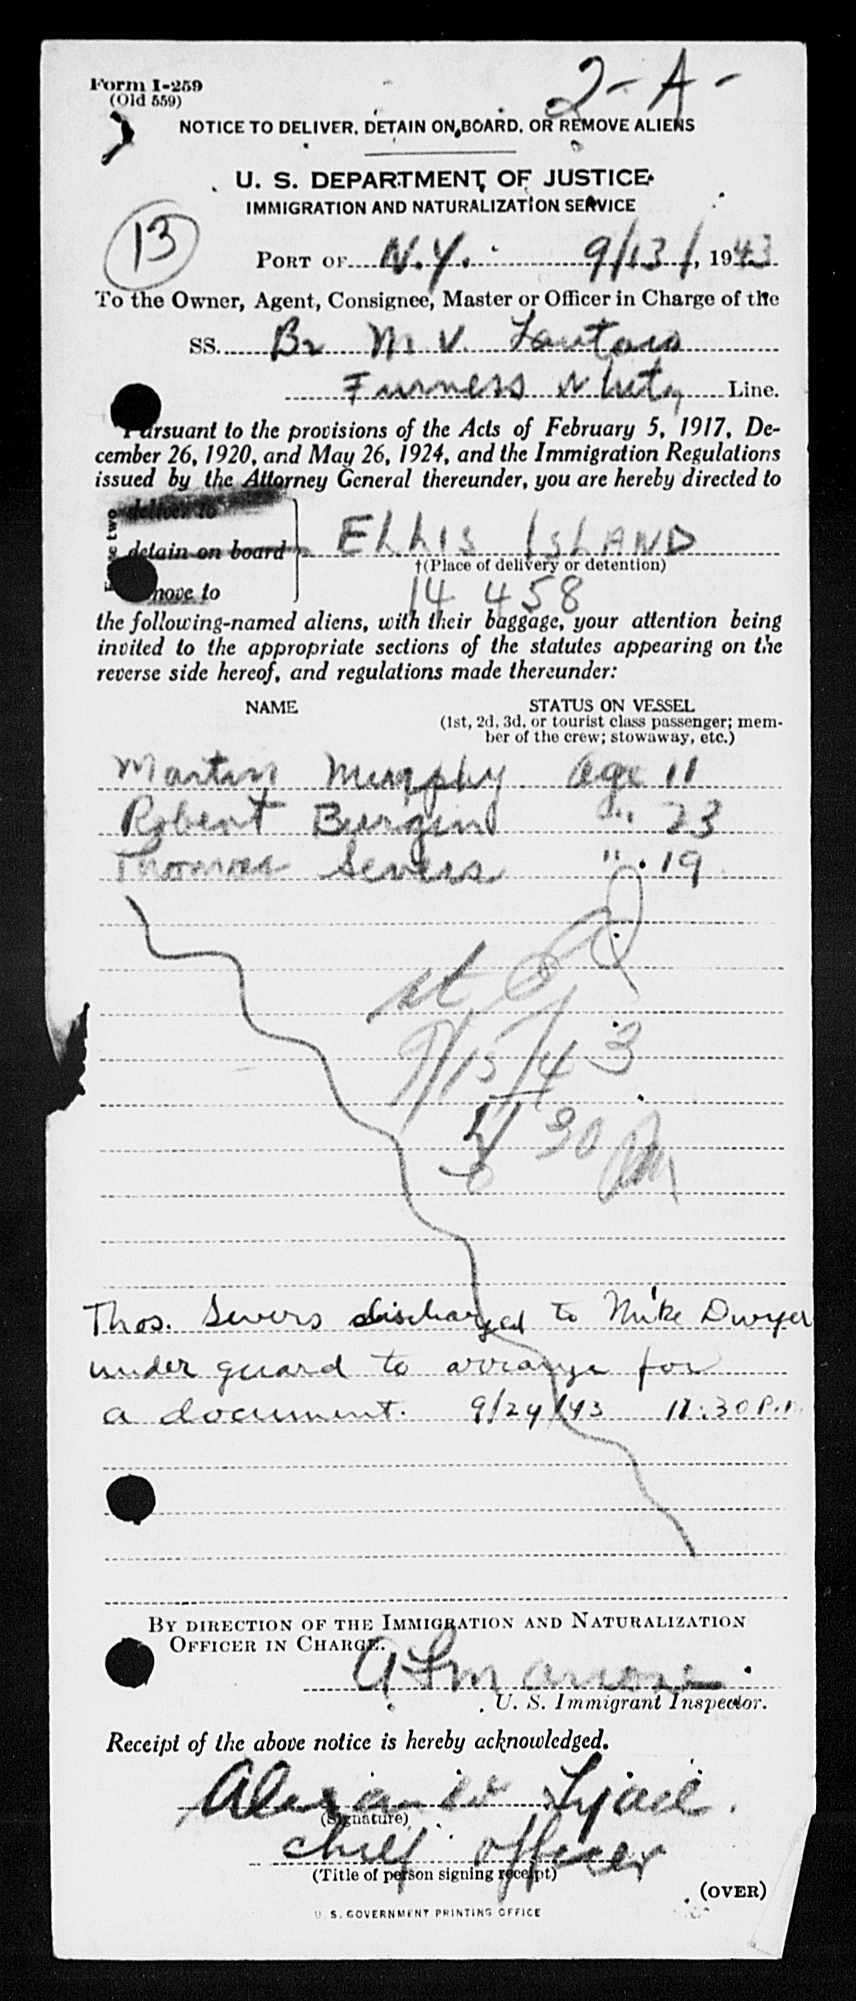 Form I-259
(Old 559)
2-A-
NOTICE TO DELIVER, DETAIN ON BOARD, OR REMOVE ALIENS
U. S. DEPARTMENT OF JUSTICE
IMMIGRATION AND NATURALIZATION SERVICE
13
PORT OF N.Y. 9/13/, 1943
To the Owner, Agent, Consignee, Master or Officer in Charge of the
SS. Br M.V. Lautaro
Furness Whity Line.
Pursuant to the provisions of the Acts of February 5, 1917, De-
cember 26, 1920, and May 26, 1924, and the Immigration Regulations
issued by the Attorney General thereunder, you are hereby directed to
deliver to
detain on board ELLIS ISLAND
†(Place of delivery or detention)
move to 14 458
the following-named aliens, with their baggage, your attention being
invited to the appropriate sections of the statutes appearing on the
reverse side hereof, and regulations made thereunder:
NAME STATUS ON VESSEL
(1st, 2d, 3d, or tourist class passenger; mem-
ber of the crew; stowaway, etc.)
Martin Murphy age 11
Robert Burgin " 23
Thomas Severs " 19
9/15/43
30 PM
Thos. Severs discharged to Mike Dwyer
under guard to arrange for
a document. 9/24/43 11:30 P.M
BY DIRECTION OF THE IMMIGRATION AND NATURALIZATION
OFFICER IN CHARGE.
U. S. Immigrant Inspector.
Receipt of the above notice is hereby acknowledged.
Alexander
(Signature)
chief officer
(Title of person signing receipt)
(OVER)
U. S. GOVERNMENT PRINTING OFFICE